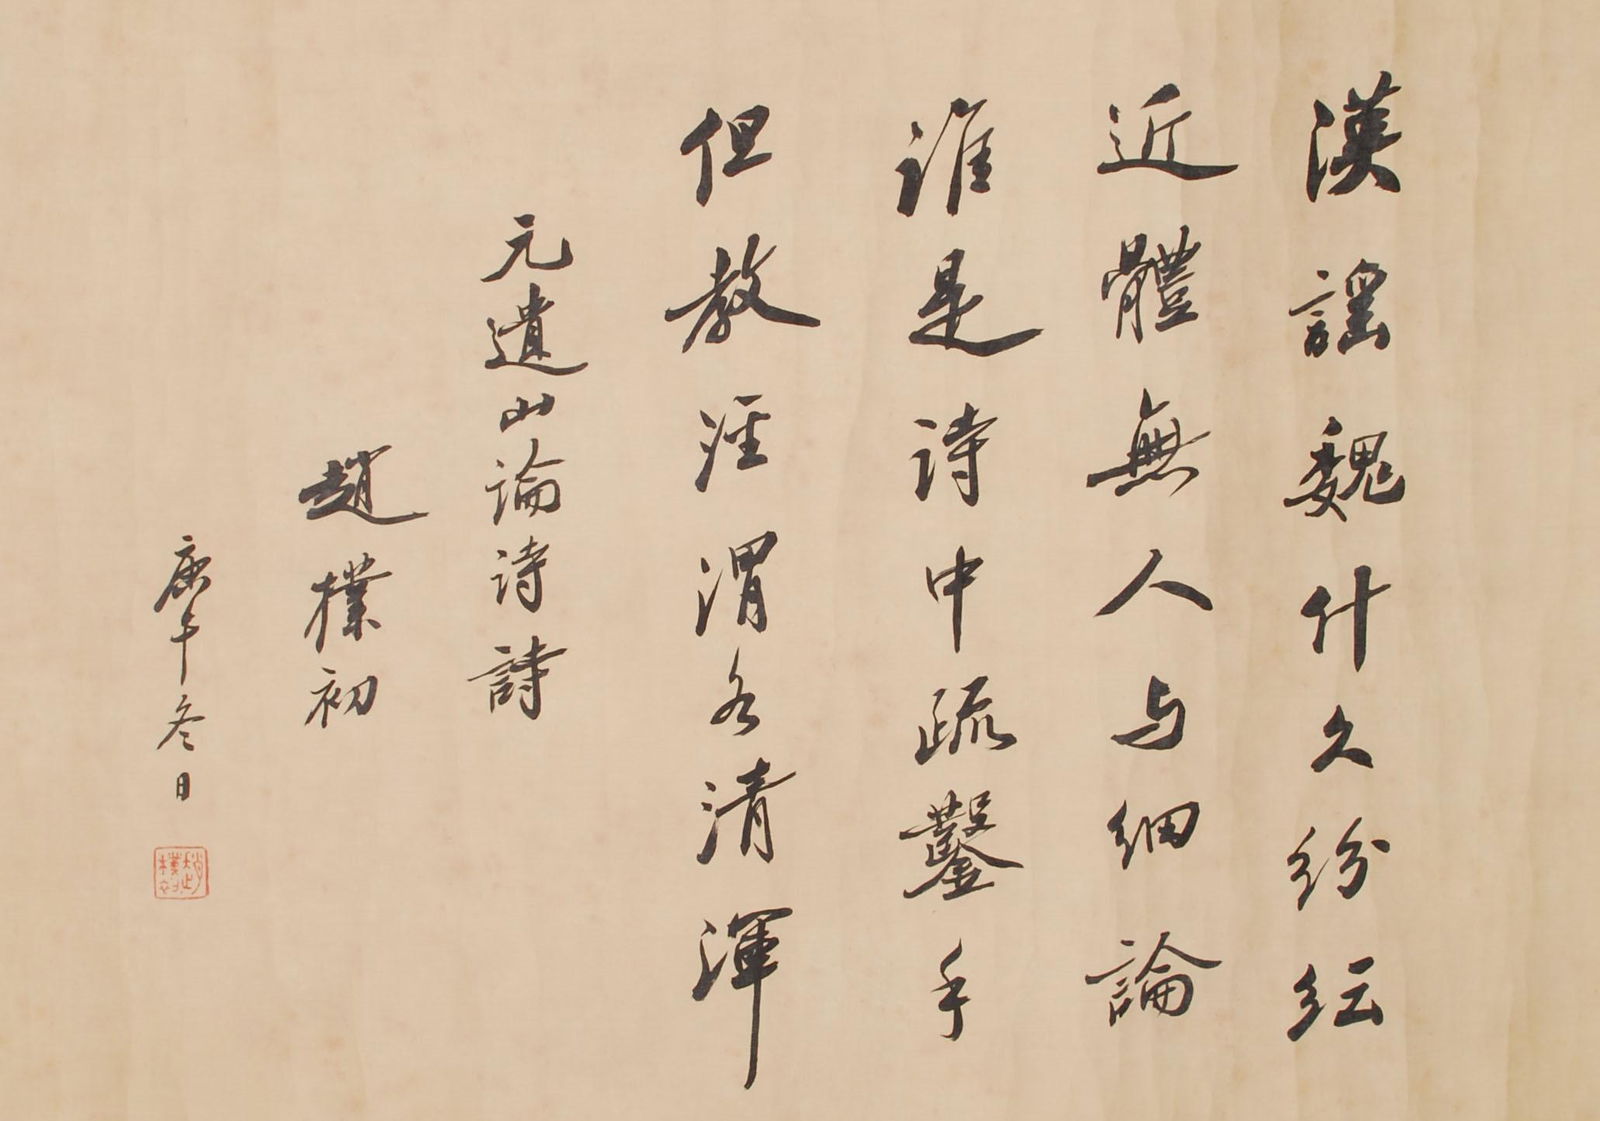 漢謠魏什久紛紜
近體無人与細論
誰是詩中疏鑿手
但教涇渭各清渾
元遺山論詩詩
趙樸初
庚午冬日
趙樸初